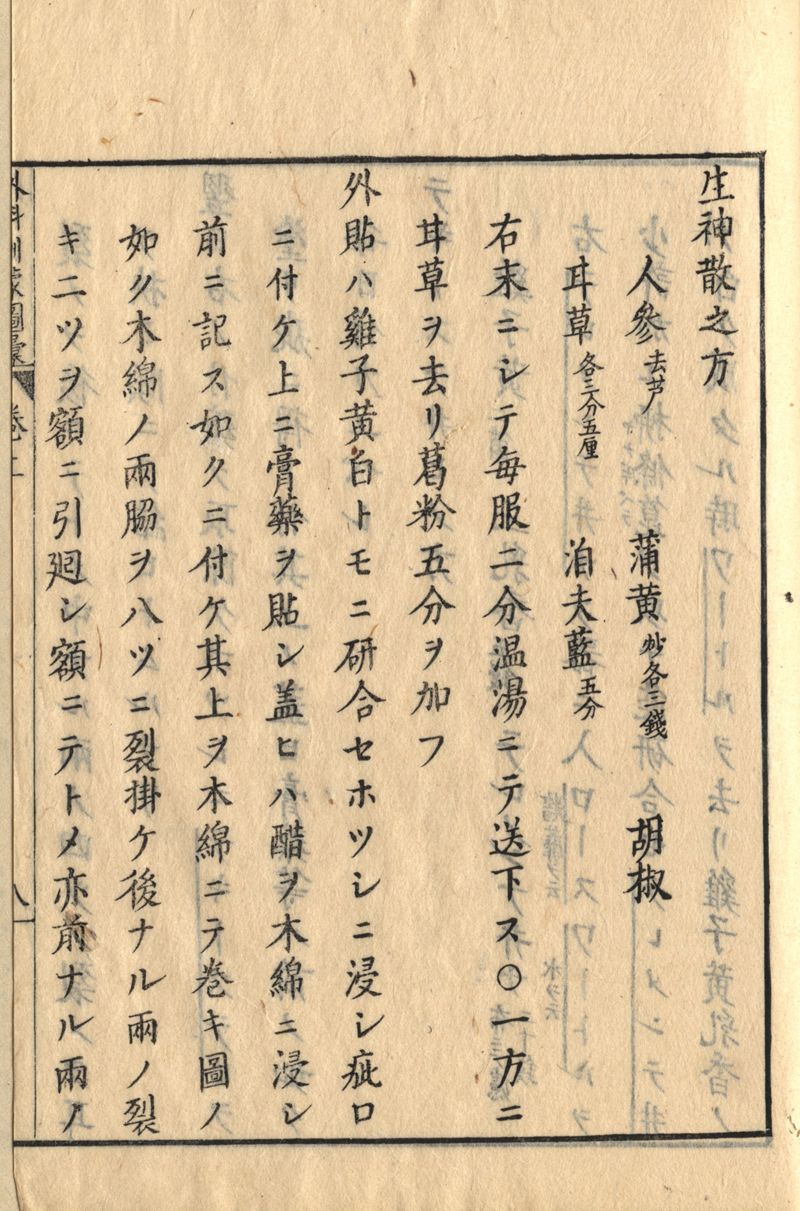 生神散之方
人參去芦 蒲黄炒各三錢 胡椒
耳草各三分五厘 洎夫藍五分
右末ニシテ毎服二分温湯ニテ送下ス〇一方ニ
耳草ヲ去リ葛粉五分ヲ加フ
外貼ハ雞子黄白トモニ研合セホツシニ浸シ疵口
ニ付ケ上ニ膏藥ヲ貼シ盖ヒハ醋ヲ木綿ニ浸シ
前ニ記ス如クニ付ケ其上ヲ木綿ニテ巻キ圖ノ
如ク木綿ノ兩脇ヲ八ツニ裂掛ケ後ナル兩ノ裂
キ二ツヲ額ニ引廻シ額ニテトメ亦前ナル兩ノ
外科訓蒙圖彙 卷 八